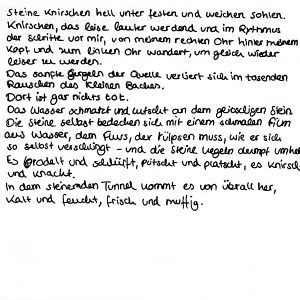 Steine Knirschen hell unter festen und weichen Sohlen.
Knirschen, das leise lauter werdend und im Rythmus
der Schritte vor mir, von meinem rechten Ohr hinter meinem
Kopf und zum linken Ohr wandert, um gleich wieder
leiser zu werden.
Das sanfte Gurgeln der Quelle verliert sich im tosenden
Rauschen des kleinen Baches.
Dort ist gar nichts tot.
Das Wasser schmatzt und lutscht an dem glitschigen Stein
Die Steine selbst bedecken sich mit einem schmalen Film
aus Wasser, dem Fluss, der rülpsen muss, wie er sich
so selbst verschlingt - und die Steine kegeln dumpf umher
Es brodelt und schlürft, pitscht und platscht, es knirscht
und knackt.
In dem steinernden Tunnel kommt es von überall her,
kalt und feucht, frisch und muffig.